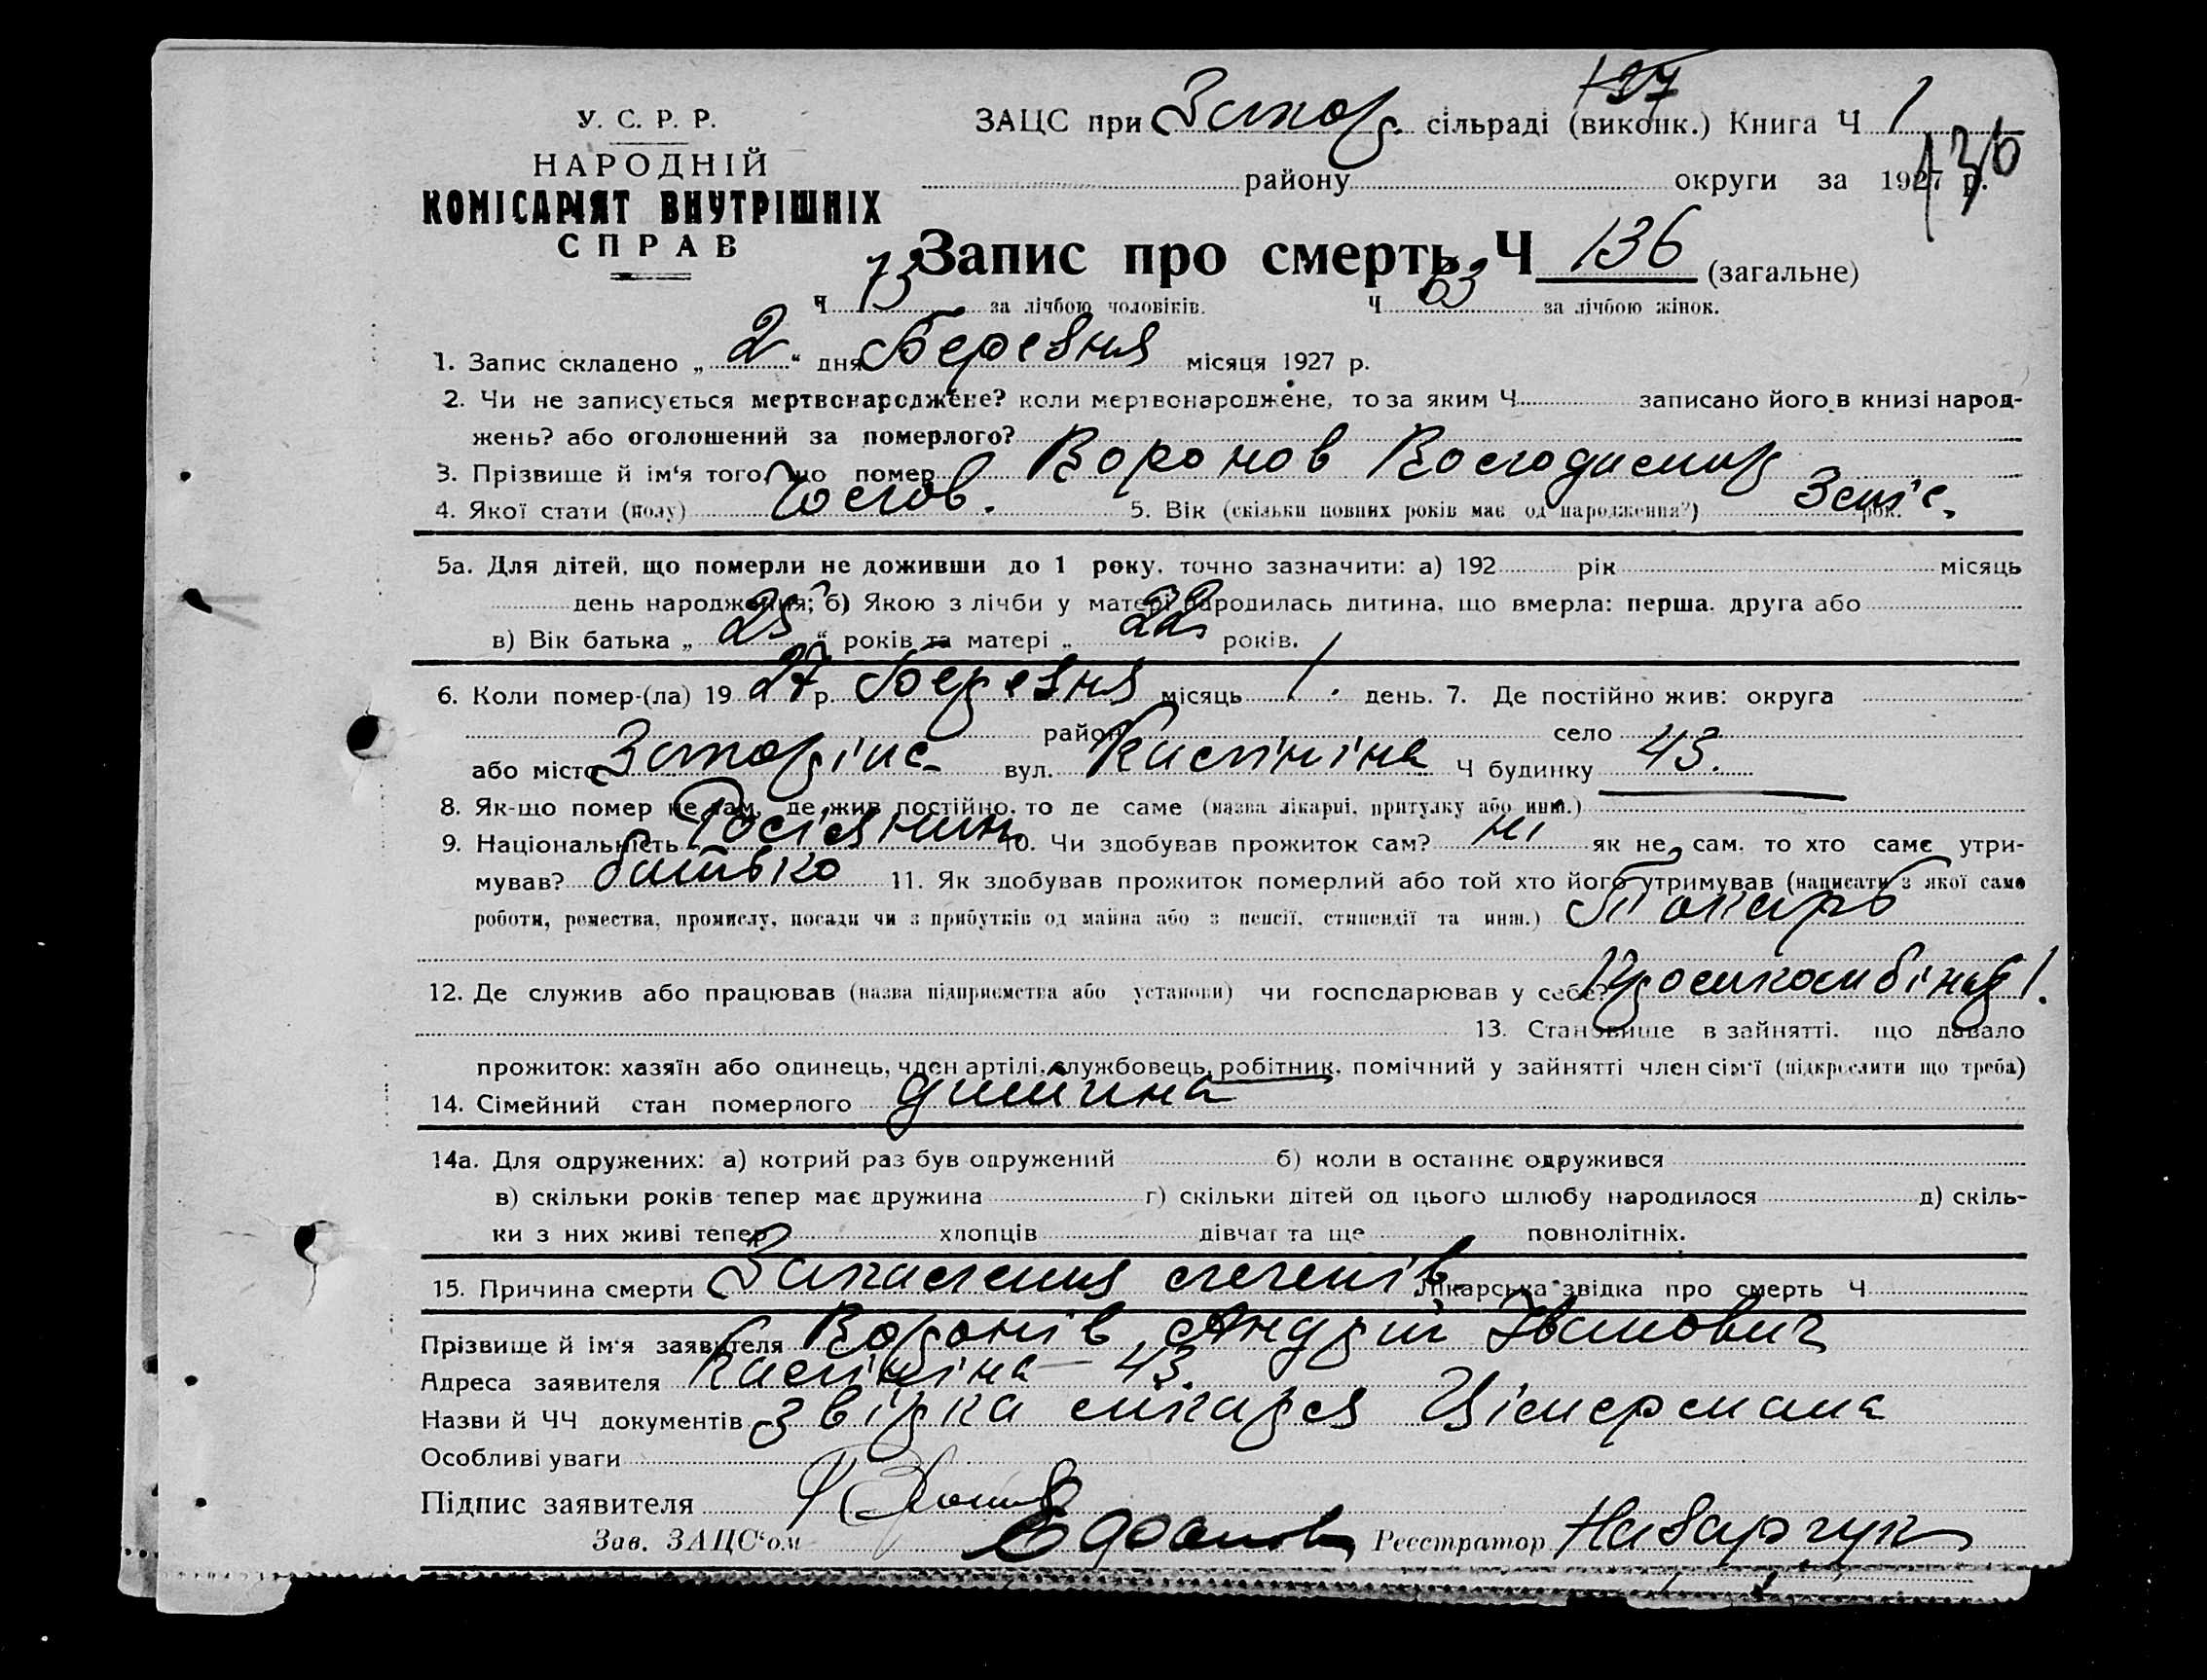 127
У. С. Р. Р.
НАРОДНІЙ
КОМІСАРІЯТ ВНУТРІШНІХ
СПРАВ
ЗАЦС при Запор. сільраді (виконк.) Книга Ч 1
136
району округи за 1927 р.
Запис про смерть Ч 136 (загальне)
Ч 73 за лічбою чоловіків. Ч 63 за лічбою жінок.
1. Запис складено „ 2 “ дня Березня місяця 1927 р.
2. Чи не записується мертвонароджене? коли мертвонароджене, то за яким Ч записано його в книзі народ-
жень? або оголошений за померлого?
3. Прізвище й ім‘я того, що помер Воронов Володимир
4. Якої стати (полу) Чолов. 5. Вік (скільки повних років має од народження?) 3 міс. рок.
5а. Для дітей, що померли не доживши до 1 року, точно зазначити: а) 192 рік місяць
день народження; б) Якою з лічби у матері народилась дитина, що вмерла: перша, друга або
в) Вік батька „ 25 “ років та матері „ 22 років.
6. Коли помер-(ла) 19 27 р. Березня місяць 1. день. 7. Де постійно жив: округа
район село
або місто Запоріжа вул. Калініна Ч будинку 43.
8. Як-що помер не там, де жив постійно, то де саме (назва лікарні, притулку або инш.)
9. Національність Росіянин 10. Чи здобував прожиток сам? ні як не сам, то хто саме утри-
мував? батько 11. Як здобував прожиток померлий або той хто його утримував (написати з якої само
роботи, ремества, промислу, посади чи з прибутків од майна або з пенсії, стипендії та инш.) Токарь
12. Де служив або працював (назва підприємства або установи) чи господарював у себе?
13. Становище в зайнятті, що давало
прожиток: хазяїн або одинець, член артілі, службовець, робітник, помічний у зайнятті член сім‘ї (підкреслити що треба)
14. Сімейний стан померлого дитина
14а. Для одружених: а) котрий раз був одружений б) коли в останнє одружився
в) скільки років тепер має дружина г) скільки дітей од цього шлюбу народилося д) скіль-
ки з них живі тепер хлопців дівчат та ще повнолітніх.
15. Причина смерти Запалення легенів. Лікарська звідка про смерть Ч
Прізвище й ім‘я заявителя Воронів Андрій Іванович
Адреса заявителя Калініна – 43.
Назви й ЧЧ документів звідка лікаря Цімермана
Особливі уваги
Підпис заявителя
Зав. ЗАЦС‘ом Реєстратор Назарчук